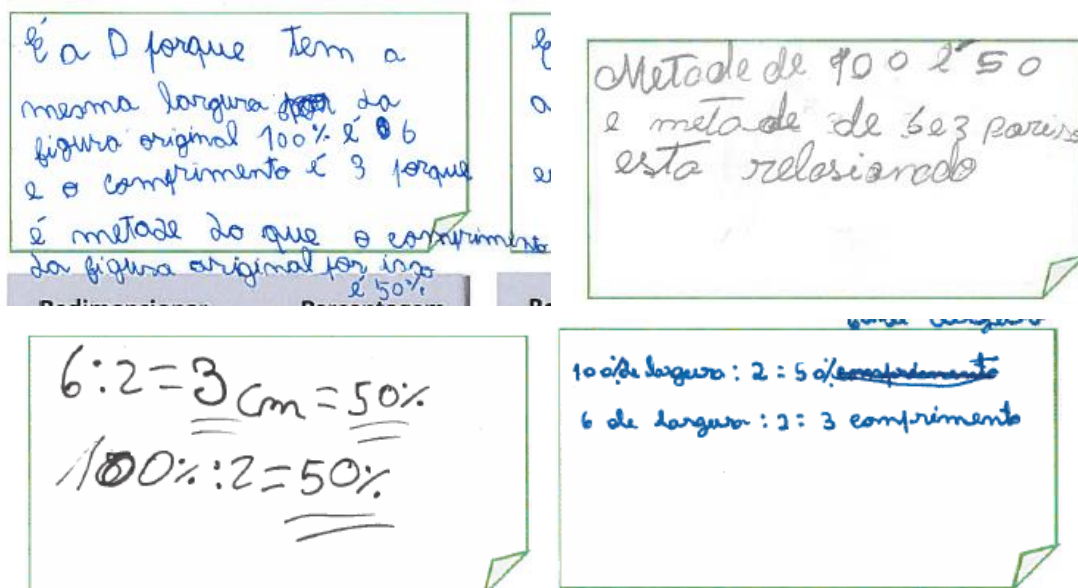 É a D porque tem a
mesma largura da
figura original 100% é 6
e o comprimento é 3 porque
é metade do que o comprimento
da figura original por isso
é 50%
Metade de 100 é 50
e metade de 6 e 3 por isso
esta relasionado
6:2=3cm=50%
100%:2=50%
100% de largura : 2 = 50% comprimento
6 de largura : 2 = 3 comprimento